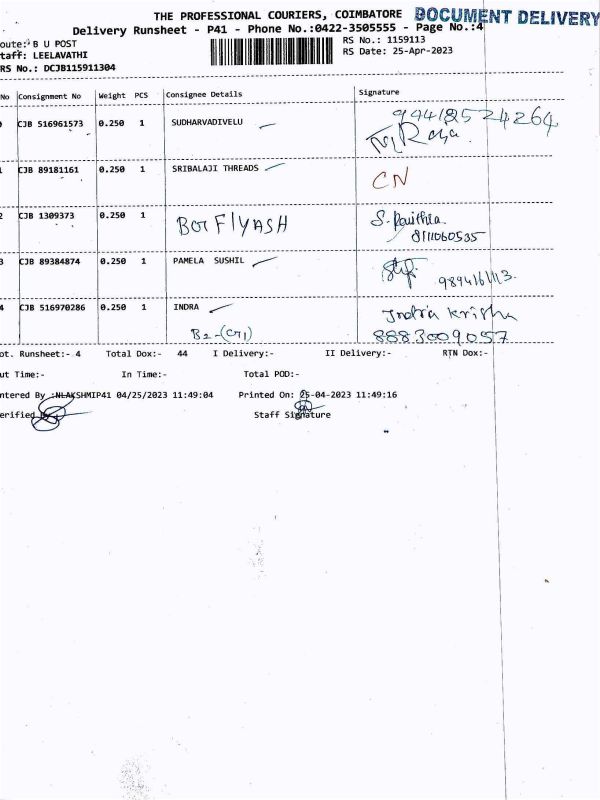 THE PROFESSIONAL COURIERS, COIMBATORE DOCUMENT DELIVERY
Delivery Runsheet - P41 - Phone No.:0422-3505555 - Page No.:4
oute: B U POST RS No.: 1159113
taff: LEELAVATHI RS Date: 25-Apr-2023
RS No.: DCJB115911304
No Consignment No Weight PCS Consignee Details Signature
0 CJB 516961573 0.250 1 SUDHARVADIVELU
1 CJB 89181161 0.250 1 SRIBALAJI THREADS CN
2 CJB 1309373 0.250 1 BOT FlYASH
8111060535
3 CJB 89384874 0.250 1 PAMELA SUSHIL
4 CJB 516970286 0.250 1 INDRA Indra Krisha
8883009057
ot. Runsheet:- 4 Total Dox:- 44 I Delivery:- II Delivery:- RTN Dox:-
ut Time:- In Time:- Total POD:-
ntered By :NLAKSHMIP41 04/25/2023 11:49:04 Printed On: 25-04-2023 11:49:16
erified By Staff Signature